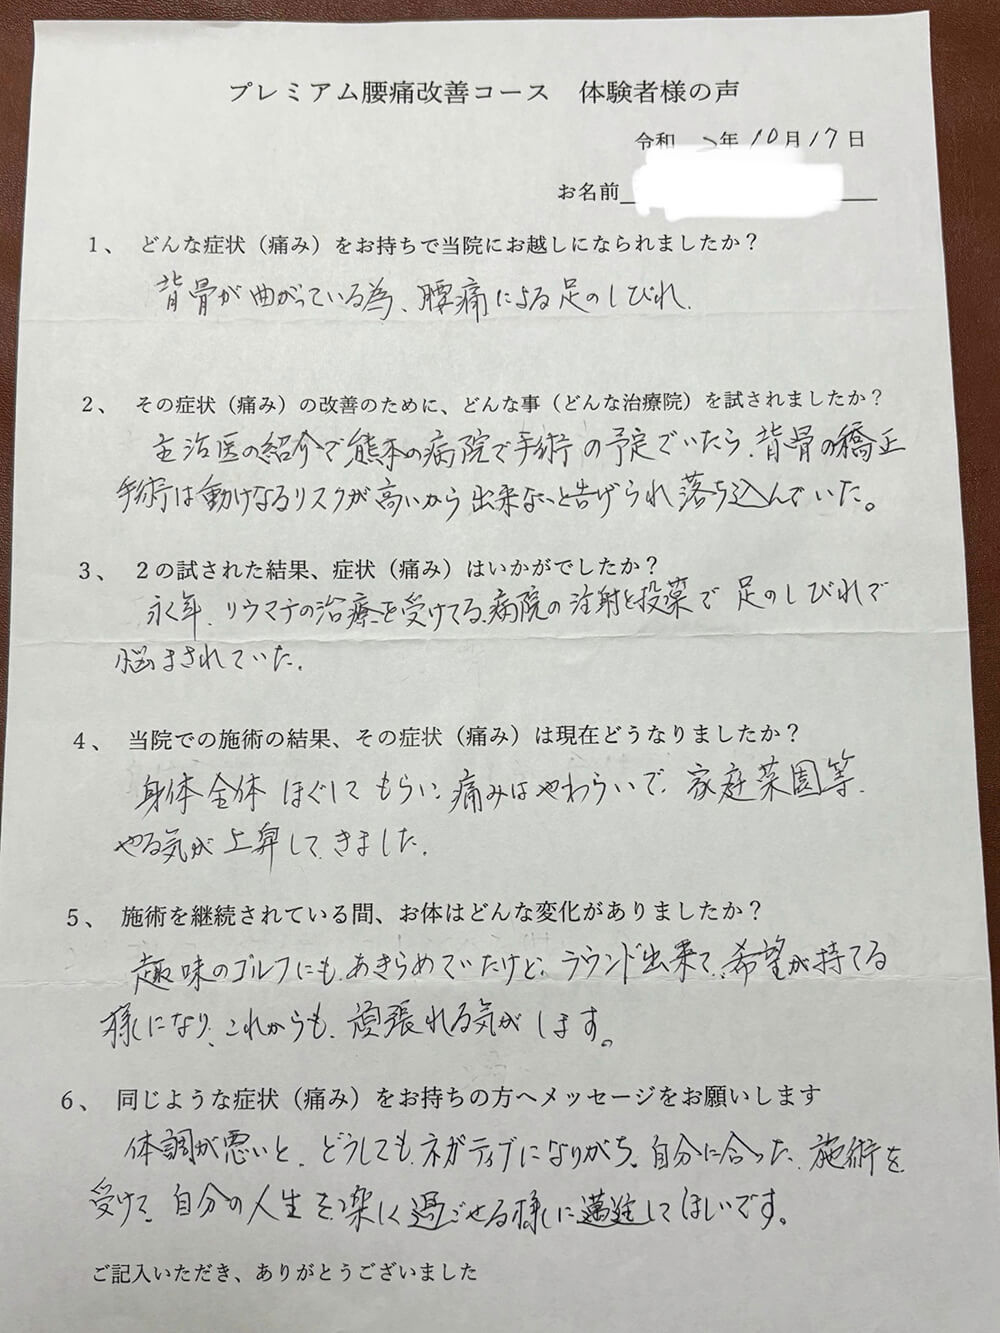 プレミアム腰痛改善コース　体験者様の声
令和　年 10月17日
お名前
1、 どんな症状（痛み）をお持ちで当院にお越しになられましたか？
背骨が曲がっている為、腰痛による足のしびれ.
2、 その症状（痛み）の改善のために、どんな事（どんな治療院）を試されましたか？
主治医の紹介で熊本の病院で手術の予定でいたら、背骨の矯正
手術は動けなるリスクが高いから出来ないと告げられ落ち込んでいた。
3、 2の試された結果、症状（痛み）はいかがでしたか？
永年、リウマチの治療を受けてる、病院の注射と投薬で 足のしびれで
悩まされていた.
4、 当院での施術の結果、その症状（痛み）は現在どうなりましたか？
身体全体 ほぐして もらい、痛みはやわらいで、家庭菜園等、
やる気が上昇して、きました.
5、 施術を継続されている間、お体はどんな変化がありましたか？
趣味のゴルフにも、あきらめていたけど、ラウンド出来て、希望が持てる
様になり、これからも、頑張れる気がします。
6、 同じような症状（痛み）をお持ちの方へメッセージをお願いします
体調が悪いと、どうしても、ネガティブになりがち。自分に合った、施術を
受けて、自分の人生を楽しく過ごせる様に邁進してほしいです。
ご記入いただき、ありがとうございました